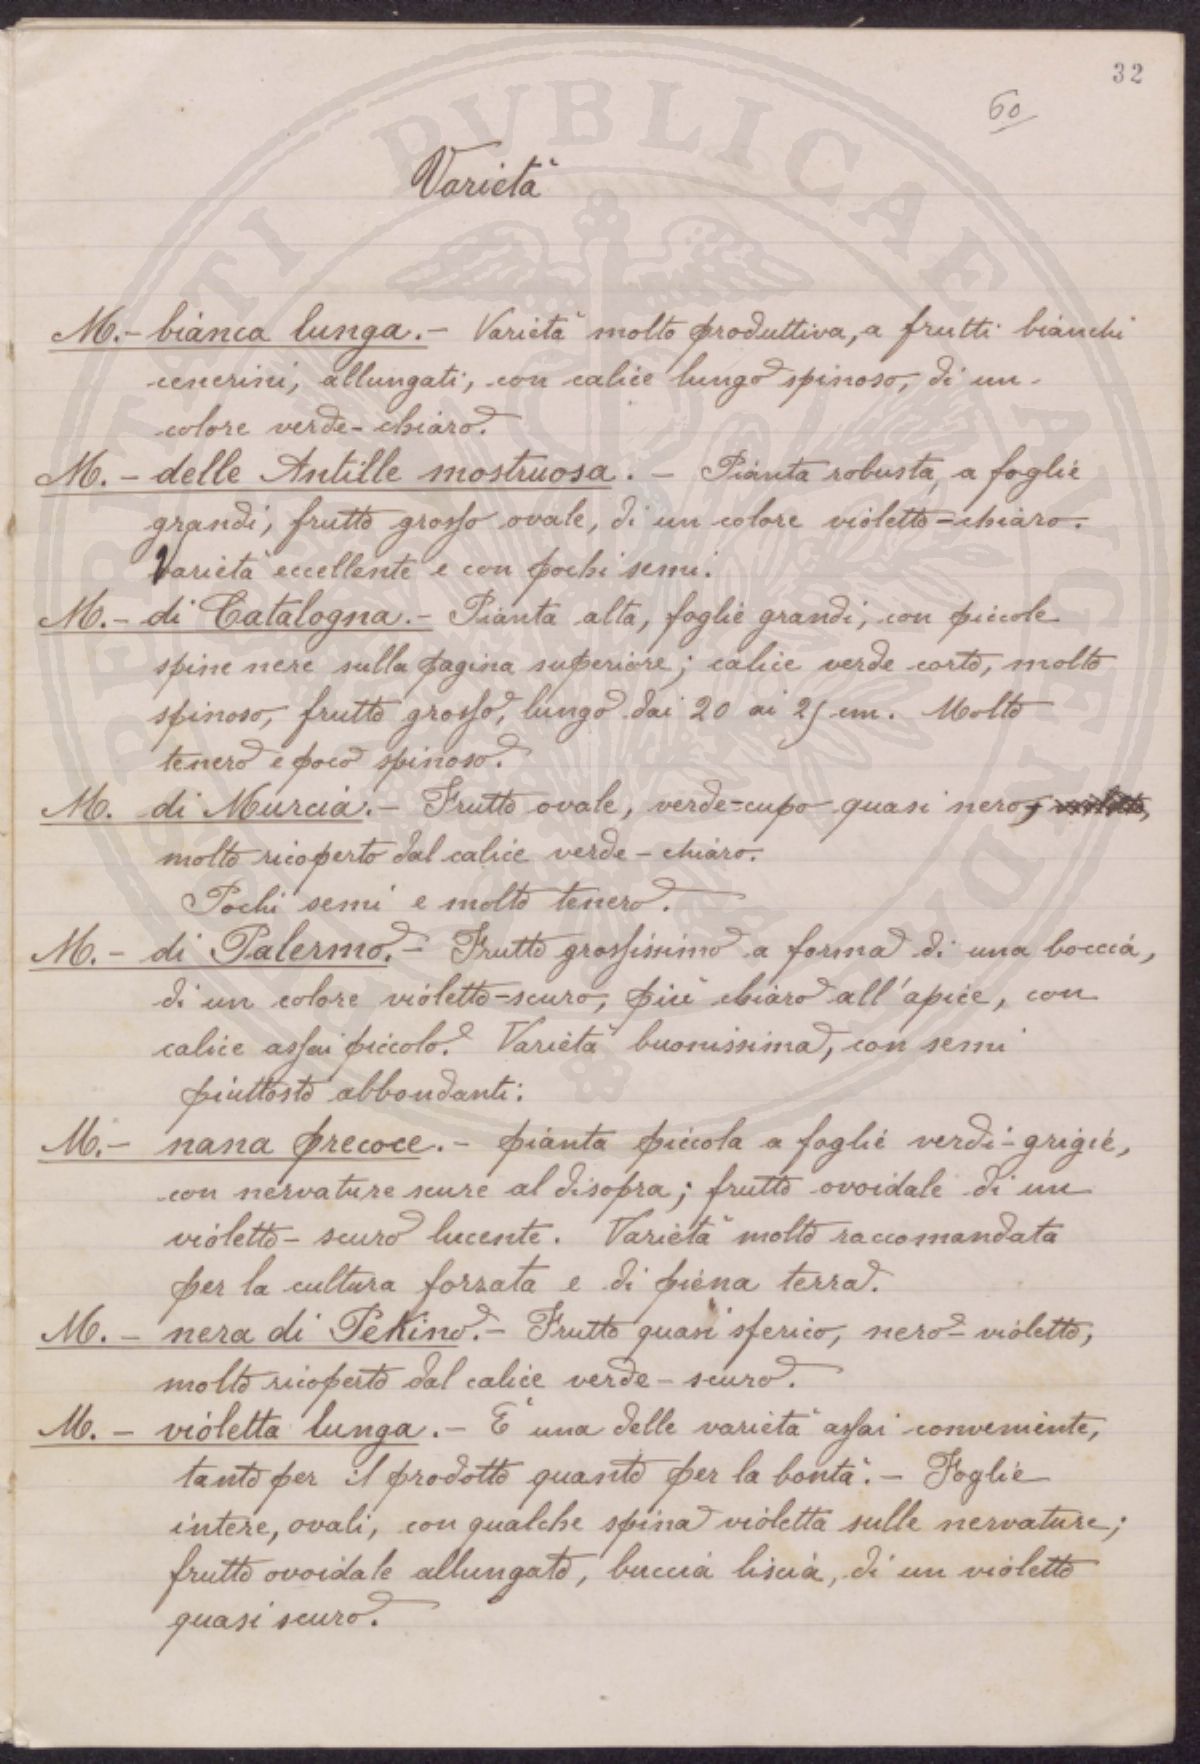 32
60
Varietà
M.- bianca lunga.- Varietà molto produttiva, a frutti bianchi
cenerini, allungati, con calice lungo spinoso, di un
colore verde-chiaro.
M.- delle Antille mostruosa. - Pianta robusta, a foglie
grandi, frutto grosso ovale, di un colore violetto=chiaro.
Varietà eccellente e con pochi semi.
M.- di Catalogna.- Pianta alta, foglie grandi, con piccole
spine nere sulla pagina superiore; calice verde corto, molto
spinoso, frutto grosso, lungo dai 20 ai 25 cm. Molto
tenero e poco spinoso.
M. di Murcia.- Frutto ovale, verde=cupo quasi nero,
molto ricoperto dal calice verde-chiaro.
Pochi semi e molto tenero.
M.- di Palermo.- Frutto grossissimo a forma di una boccia,
di un colore violetto=scuro, più chiaro all'apice, con
calice assai piccolo. Varietà buonissima, con semi
piuttosto abbondanti.
M.- nana precoce.- pianta piccola a foglie verdi-grigie,
con nervature scure al disopra; frutto ovoidale di un
violetto-scuro lucente. Varietà molto raccomandata
per la cultura forzata e di piena terra.
M.- nera di Pekino.- Frutto quasi sferico, nero-violetto,
molto ricoperto dal calice verde-scuro.
M.- violetta lunga.- È una delle varietà assai conveniente,
tanto per il prodotto quanto per la bontà.- Foglie
intere, ovali, con qualche spina violetta sulle nervature;
frutto ovoidale allungato, buccia liscia, di un violetto
quasi scuro.